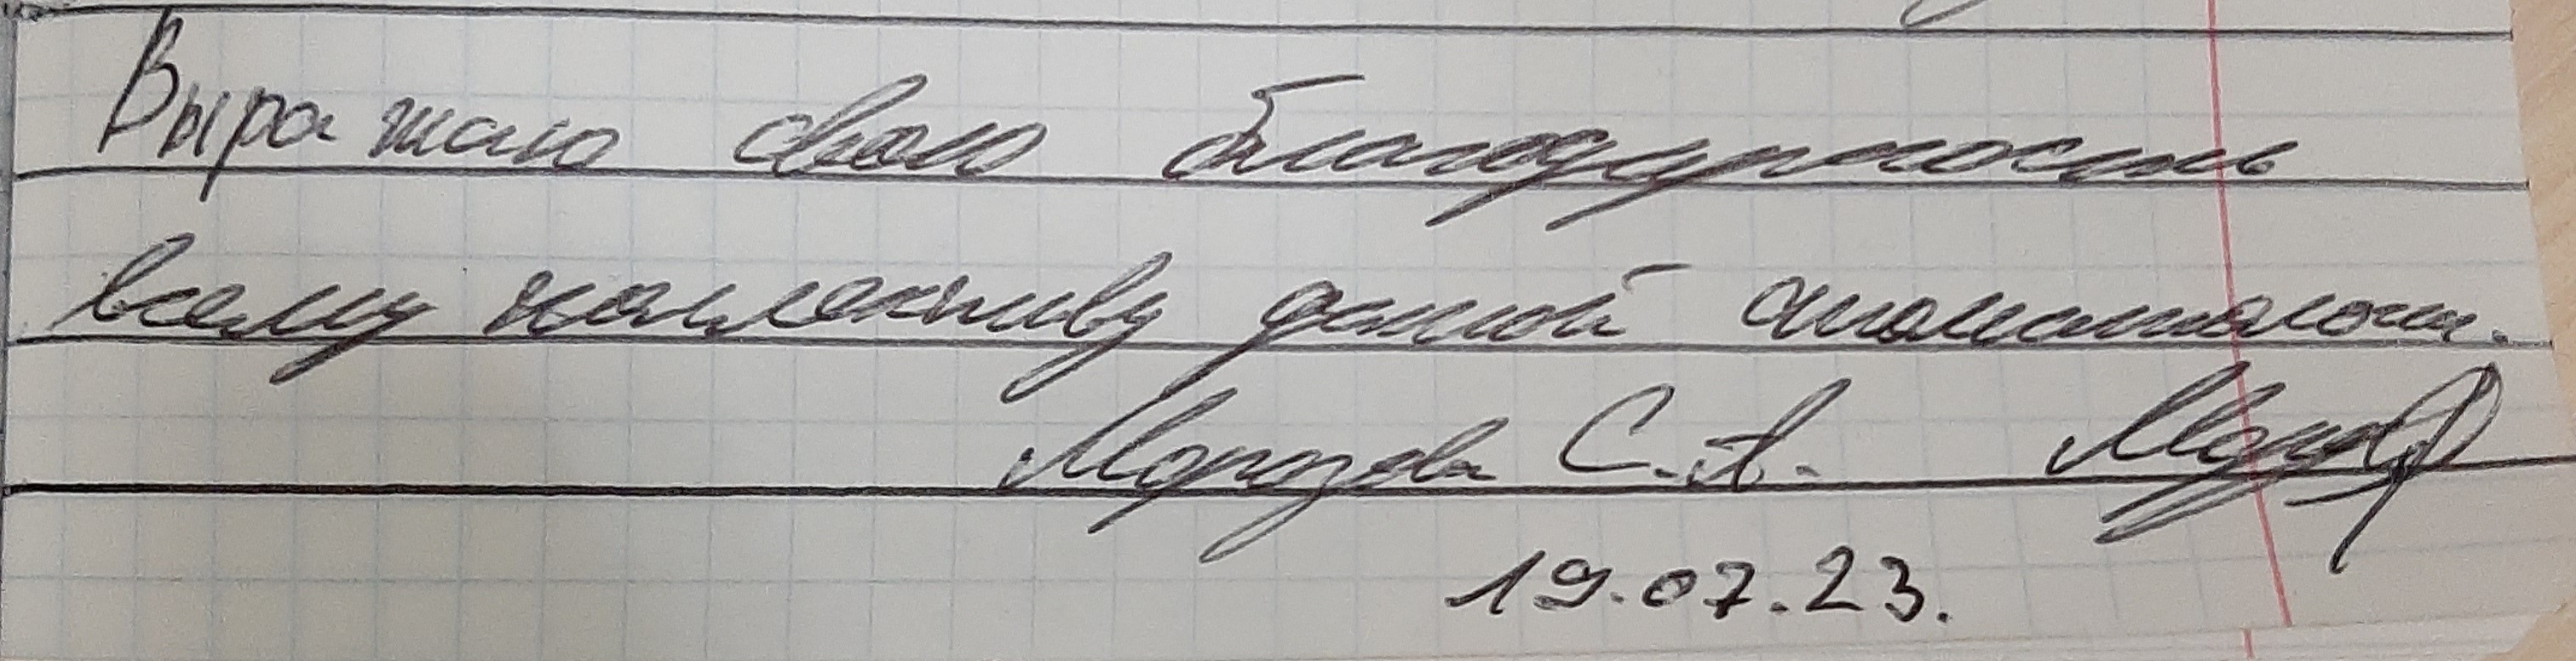 Выражаю свою благодарность
всему коллективу данной стоматологии.
Морозова С.А.
19.07.23.